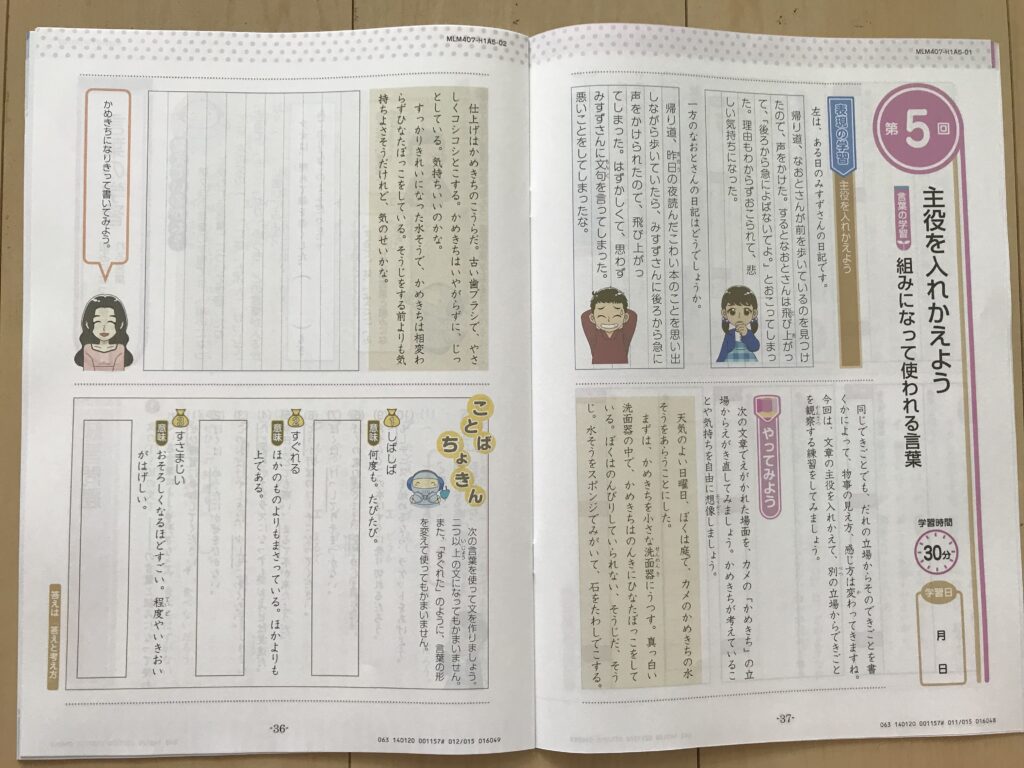 MLM407-H1A5-01
第5回
主役を入れかえよう
言葉の学習
組みになって使われる言葉
学習時間
30分
学習日
月
日
同じできごとでも、だれの立場からそのできごとを書
くかによって、物事の見え方、感じ方は変わってきますね。
今回は、文章の主役を入れかえて、別の立場からできごと
を観察する練習をしてみましょう。
表現の学習
主役を入れかえよう
左は、ある日のみすずさんの日記です。
帰り道、なおとさんが前を歩いているのを見つけ
たので、声をかけた。するとなおとさんは飛び上がっ
て、「後ろから急によばないでよ。」とおこってしまっ
た。理由もわからずおこられて、悲
しい気持ちになった。
一方のなおとさんの日記はどうでしょうか。
帰り道、昨日の夜読んだこわい本のことを思い出
しながら歩いていたら、みすずさんに後ろから急に
声をかけられたので、飛び上がっ
てしまった。はずかしくて、思わず
みすずさんに文句を言ってしまった。
悪いことをしてしまったな。
やってみよう
次の文章でえがかれた場面を、カメの「かめきち」の立
場からえがき直してみましょう。かめきちが考えているこ
とや気持ちを自由に想像しましょう。
天気のよい日曜日、ぼくは庭で、カメのかめきちの水
そうをあらうことにした。
まずは、かめきちを小さな洗面器にうつす。真っ白い
洗面器の中で、かめきちはのんきにひなたぼっこをして
いる。ぼくはのんびりしていられない、そうじだ、そう
じ。水そうをスポンジでみがいて、石をたわしでこする。
-37-
063 140120 001157# 011/015 016048
MLM407-H1A5-02
仕上げはかめきちのこうらだ。古い歯ブラシで、やさ
しくコシコシとこする。かめきちはいやがらずに、じっ
としている。気持ちいいのかな。
すっかりきれいになった水そうで、かめきちは相変わ
らずひなたぼっこをしている。そうじをする前よりも気
持ちよさそうだけれど、気のせいかな。
かめきちになりきって書いてみよう。
ことばちょきん
次の言葉を使って文を作りましょう。
二つ以上の文になってもかまいません。
また、「すぐれた」のように、言葉の形
を変えて使ってもかまいません。
しばしば
意味 何度も。たびたび。
すぐれる
意味 ほかのものよりもまさっている。ほかよりも
上である。
すさまじい
意味 おそろしくなるほどすごい。程度やいきおい
がはげしい。
答えは 答えと考え方
-36-
063 140120 001157# 012/015 016049